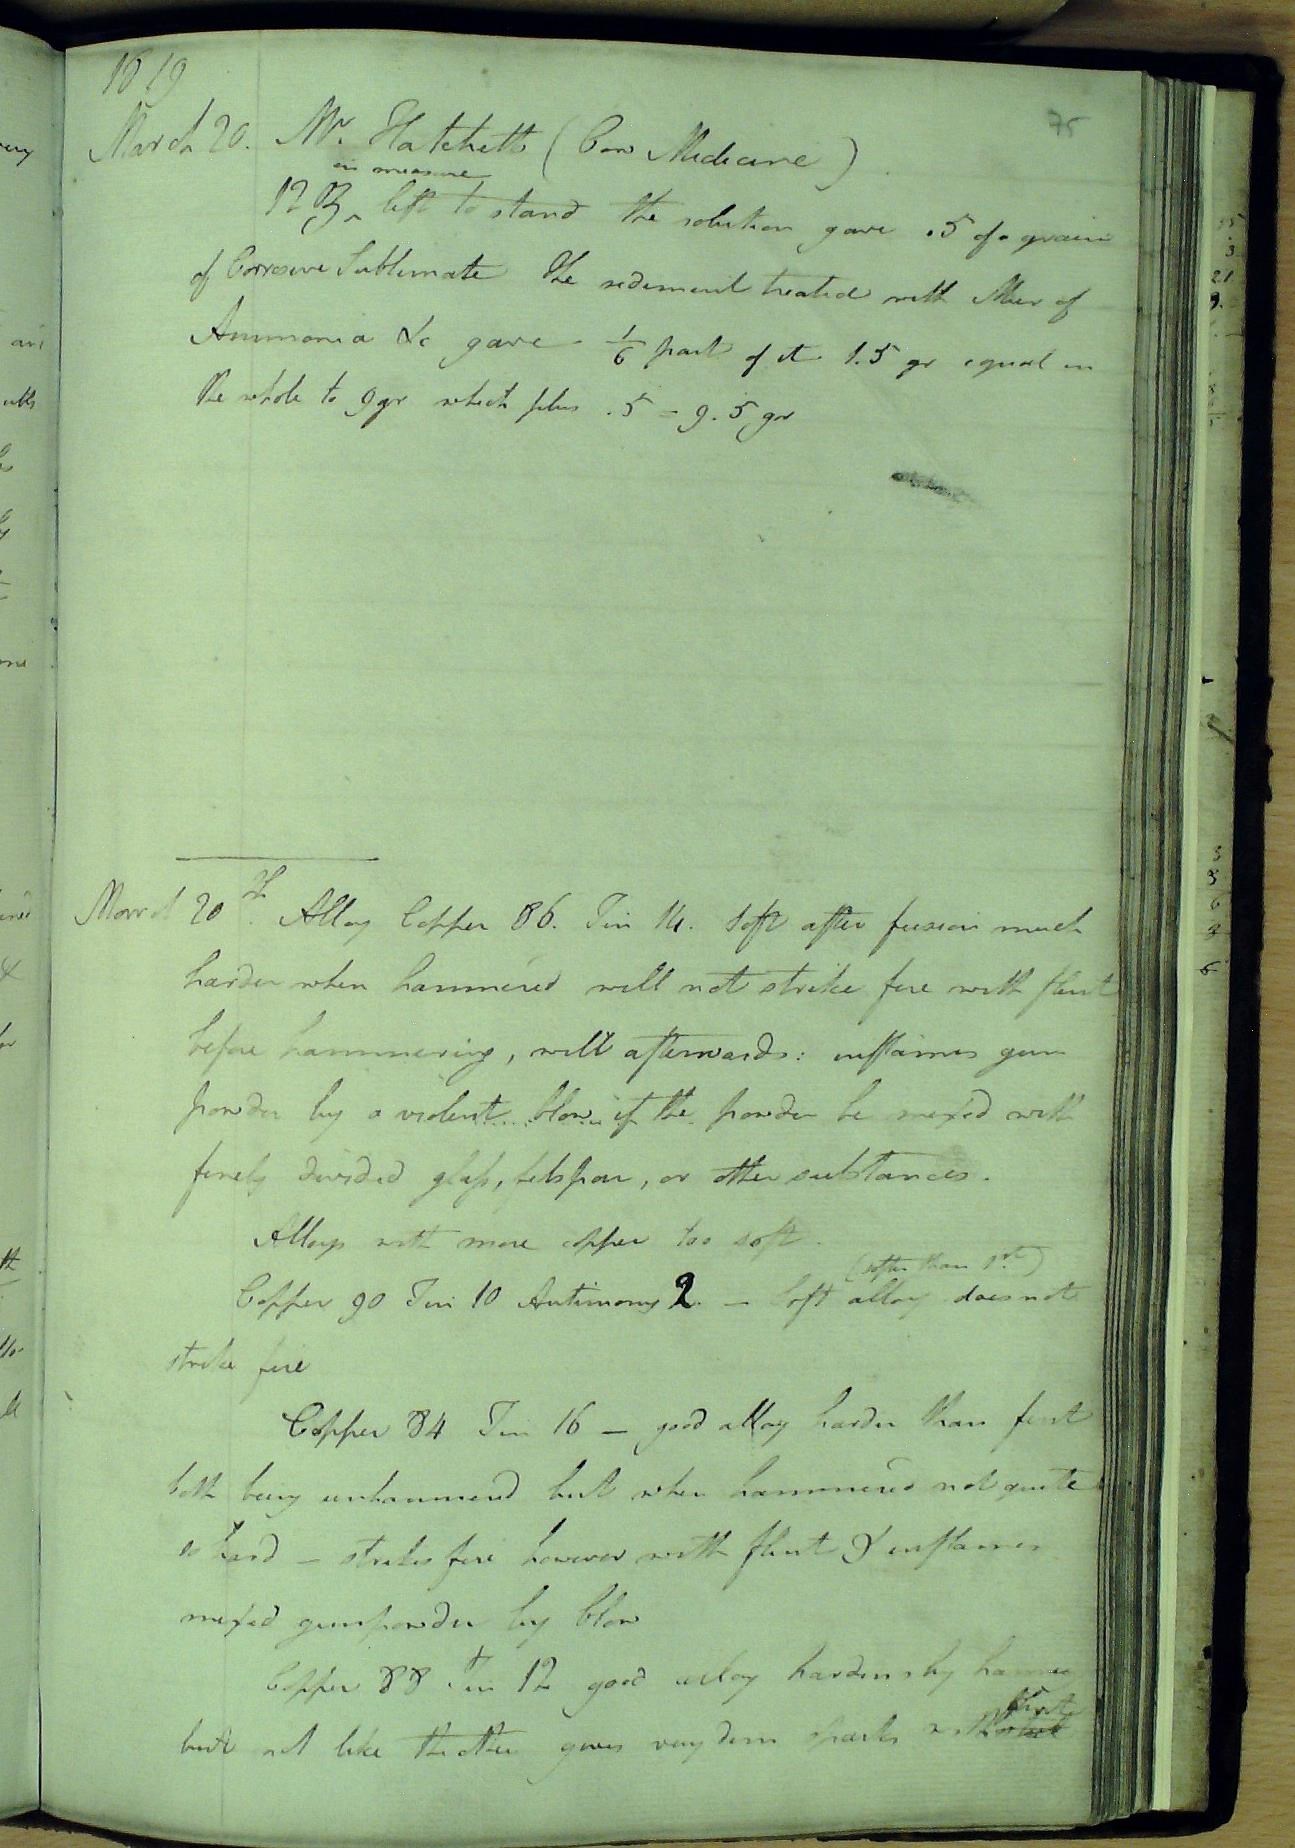 1819
75
March 20. Mr. Hatchett (Cow Medicine)
in measure
12 ℥ ‸ left to stand the solution gave .5 of a grain
of Corrosive Sublimate The sediment treated with Mur of
Ammonia &c gave 1/6 part of it 1.5 gr equal in
the whole to 9 gr which plus .5 = 9.5 gr
March 20th. Alloy Copper 86. Tin 14. Soft after fusion much
harder when hammered will not strike fire with flint
before hammering, will afterwards: inflames gun
powder by a violent blow if the powder be mixed with
finely divided glass, felspar, or other substances.
Alloys with more copper too soft.
(softer than 1st)
Copper 90 Tin 10 Antimony 2. – Soft alloy does not
strike fire
Copper 84 Tin 16 – good alloy harder than first
both being unhammered but when hammered not quite
as hard – strikes fire however with flint & inflames
mixed gunpowder by blow
Copper 88 Tin 12 good alloy hardens by hammer
flint
but not like the other gives very dim sparks with